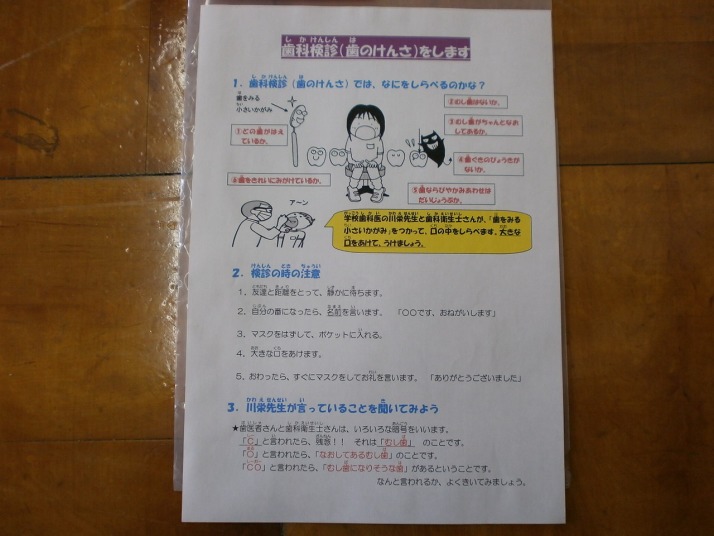 歯科検診(歯のけんさ)をします
1．歯科検診（歯のけんさ）では、なにをしらべるのかな？
歯をみる
小さいかがみ
①どの歯がはえ
ているか。
②むし歯はないか。
③むし歯がちゃんとなお
してあるか。
④歯ぐきのびょうきが
ないか。
⑤歯ならびやかみあわせは
だいじょうぶか。
⑥歯をきれいにみがけているか。
アーン
学校歯科医の川栄先生と歯科衛生士さんが、「歯をみる
小さいかがみ」をつかって、口の中をしらべます。大きな
口をあけて、うけましょう。
2．検診の時の注意
1、友達と距離をとって、静かに待ちます。
2、自分の番になったら、名前を言います。　「〇〇です、おねがいします」
3、マスクをはずして、ポケットに入れる。
4、大きな口をあけます。
5、おわったら、すぐにマスクをしてお礼を言います。　「ありがとうございました」
3．川栄先生が言っていることを聞いてみよう
★歯医者さんと歯科衛生士さんは、いろいろな暗号をいいます。
「C」と言われたら、残念！！　それは「むし歯」　のことです。
「O」と言われたら、「なおしてあるむし歯」のことです。
「CO」と言われたら、「むし歯になりそうな歯」があるということです。
なんと言われるか、よくきいてみましょう。